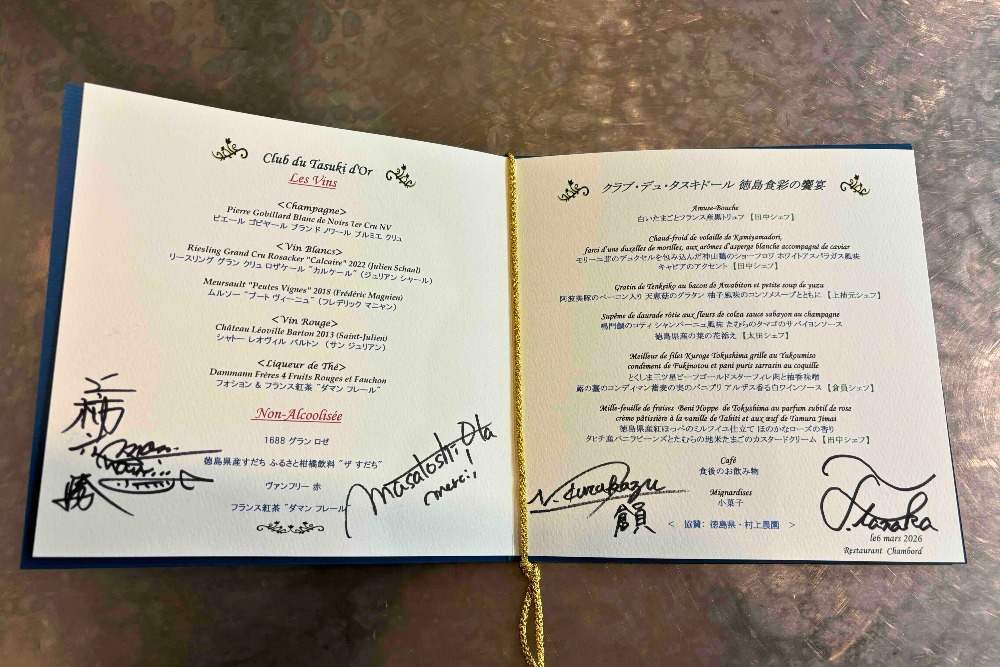 Club du Tasuki d'Or
Les Vins
<Champagne>
Pierre Gobillard Blanc de Noirs 1er Cru NV
ピエール ゴビヤール ブランド ノワール プルミエ クリュ
<Vin Blancs>
Riesling Grand Cru Rosacker "Calcaire" 2022 (Julien Schaal)
リースリング グラン クリュ ロザケール "カルケール" (ジュリアン シャール)
Meursault "Peutes Vignes" 2018 (Frédéric Magnien)
ムルソー "プート ヴィーニュ" (フレデリック マニャン)
<Vin Rouge>
Château Léoville Barton 2013 (Saint-Julien)
シャトー レオヴィル バルトン (サン ジュリアン)
<Liqueur de Thé>
Dammann Frères 4 Fruits Rouges et Fauchon
フォション & フランス紅茶 "ダマン フレール"
Non-Alcoolisée
1688 グラン ロゼ
徳島県産すだち ふるさと柑橘飲料 "ザ すだち"
ヴァンフリー 赤
フランス紅茶 "ダマン フレール"
Masatoshi Ota
merci!
クラブ・デュ・タスキドール 徳島食彩の饗宴
Amuse-Bouche
白いたまごとフランス産黒トリュフ 【田中シェフ】
Chaud-froid de volaille de Kamiyamadori,
farci d'une duxelles de morilles, aux arômes d'asperge blanche accompagné de caviar
モリーユ茸のデュクセルを包み込んだ神山鶏のショーフロワ ホワイトアスパラガス風味
キャビアのアクセント 【田中シェフ】
Gratin de Tenkeiko au bacon de Awabiton et petite soup de yuzu
阿波美豚のベーコン入り 天恵菇のグラタン 柚子風味のコンソメスープとともに 【上柿元シェフ】
Suprême de daurade rôtie aux fleurs de colza sauce sabayon au champagne
鳴門鯛のロティ シャンパーニュ風味 たむらのタマゴのサバイヨンソース
徳島県産の菜の花添え 【太田シェフ】
Meilleur de filet Kuroge Tokushima grille au Yukoumiso
condement de Fukinotou et pant puris sarrasin au coquille
とくしま三ツ星ビーフゴールドスターフィレ肉と柚香味噌
蕗の薹のコンディマン蕎麦の実のパニプリ アルザス香る白ワインソース 【倉員シェフ】
Mille-feuille de fraises Beni Hoppe de Tokushima au parfum subtil de rose
crème pâtissière à la vanille de Tahiti et aux œuf de Tamura Jimai
徳島県産紅ほっぺのミルフイユ仕立て ほのかなローズの香り
タヒチ産バニラビーンズとたむらの地米たまごのカスタードクリーム 【田中シェフ】
Café
食後のお飲み物
Mignardises
小菓子
< 協賛: 徳島県・村上農園 >
N. Kurakazu
倉員
T. Tanaka
le6 mars 2026
Restaurant Chambord